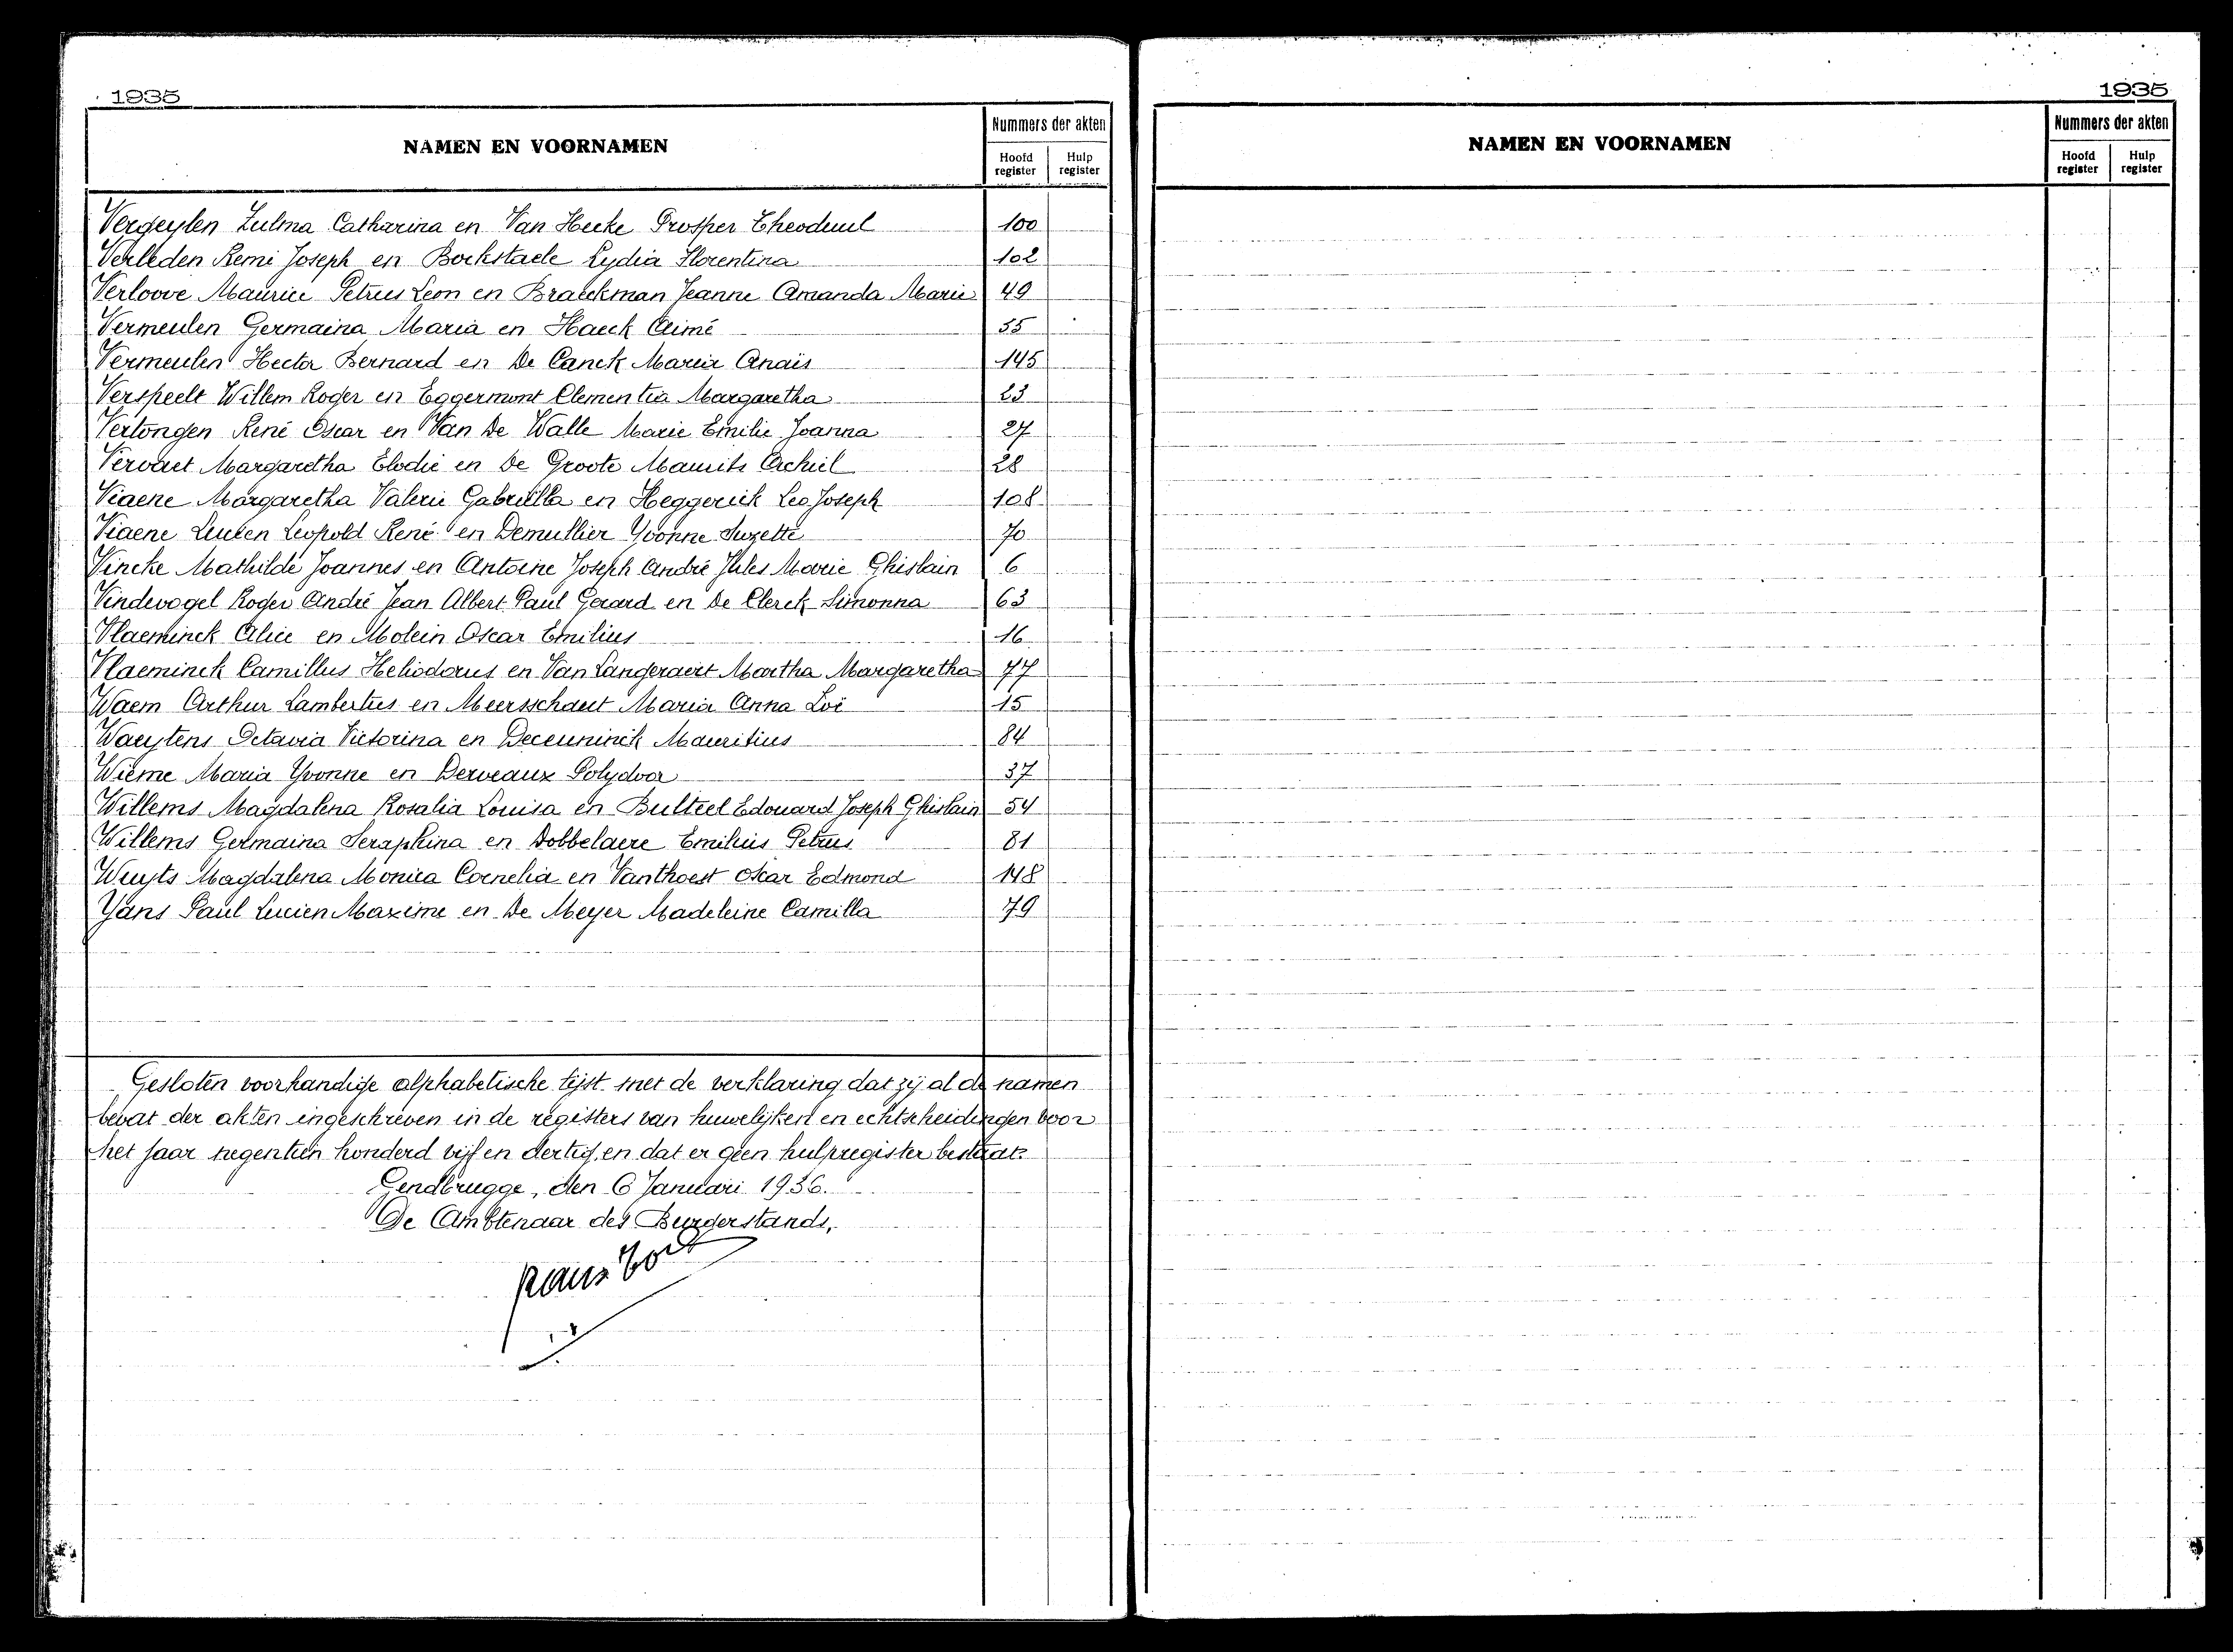 1935
NAMEN EN VOORNAMEN
Nummers der akten
Hoofd register
Hulp register
Vergeylen Zulma Catharina en Van Hecke Prosper Theoduul 100
Verleden Remi Joseph en Bockstaele Lydia Florentina 102
Verloove Maurice Petrus Leon en Braeckman Jeanne Amanda Marie 49
Vermeulen Germaina Maria en Haeck Aimé 55
Vermeulen Hector Bernard en De Canck Maria Anaïs 145
Verspeelt Willem Roger en Eggermont Clementia Margaretha 23
Vertongen René Oscar en Van De Walle Marie Emilie Joanna 27
Vervaet Margaretha Elodie en De Groote Maurits Achiel 28
Viaene Margaretha Valerie Gabriella en Heggerick Leo Joseph 108
Viaene Lucien Leopold René en Demullier Yvonne Suzette 70
Vincke Mathilde Joannes en Antoine Joseph André Jules Marie Ghislain 6
Vindevogel Roger André Jean Albert Paul Gerard en De Clerck Simonna 63
Vlaeminck Alice en Molein Oscar Emilius 16
Vlaeminck Camillus Heliodorus en Van Langeraert Martha Margaretha 77
Waem Arthur Lambertus en Meersschaut Maria Anna Loï 15
Waeytens Octavia Victorina en Deceuninck Mauritius 84
Wieme Maria Yvonne en Derveaux Polydoor 37
Willems Magdalena Rosalia Louisa en Bulteel Edouard Joseph Ghislain 54
Willems Germaina Seraphina en Dobbelaere Emilius Petrus 81
Wuyts Magdalena Monica Cornelia en Vanthoest Oscar Edmond 148
Yans Paul Lucien Maxime en De Meyer Madeleine Camilla 79
Gesloten voorhandige alphabetische lijst met de verklaring dat zij al de namen
bevat der akten ingeschreven in de registers van huwelijken en echtscheidingen voor
het jaar negentien honderd vijf en dertig, en dat er geen hulpregister bestaat.
Gendbrugge, den 6 Januari 1936.
De Ambtenaar des Burgerstands,
1935
NAMEN EN VOORNAMEN
Nummers der akten
Hoofd register
Hulp register